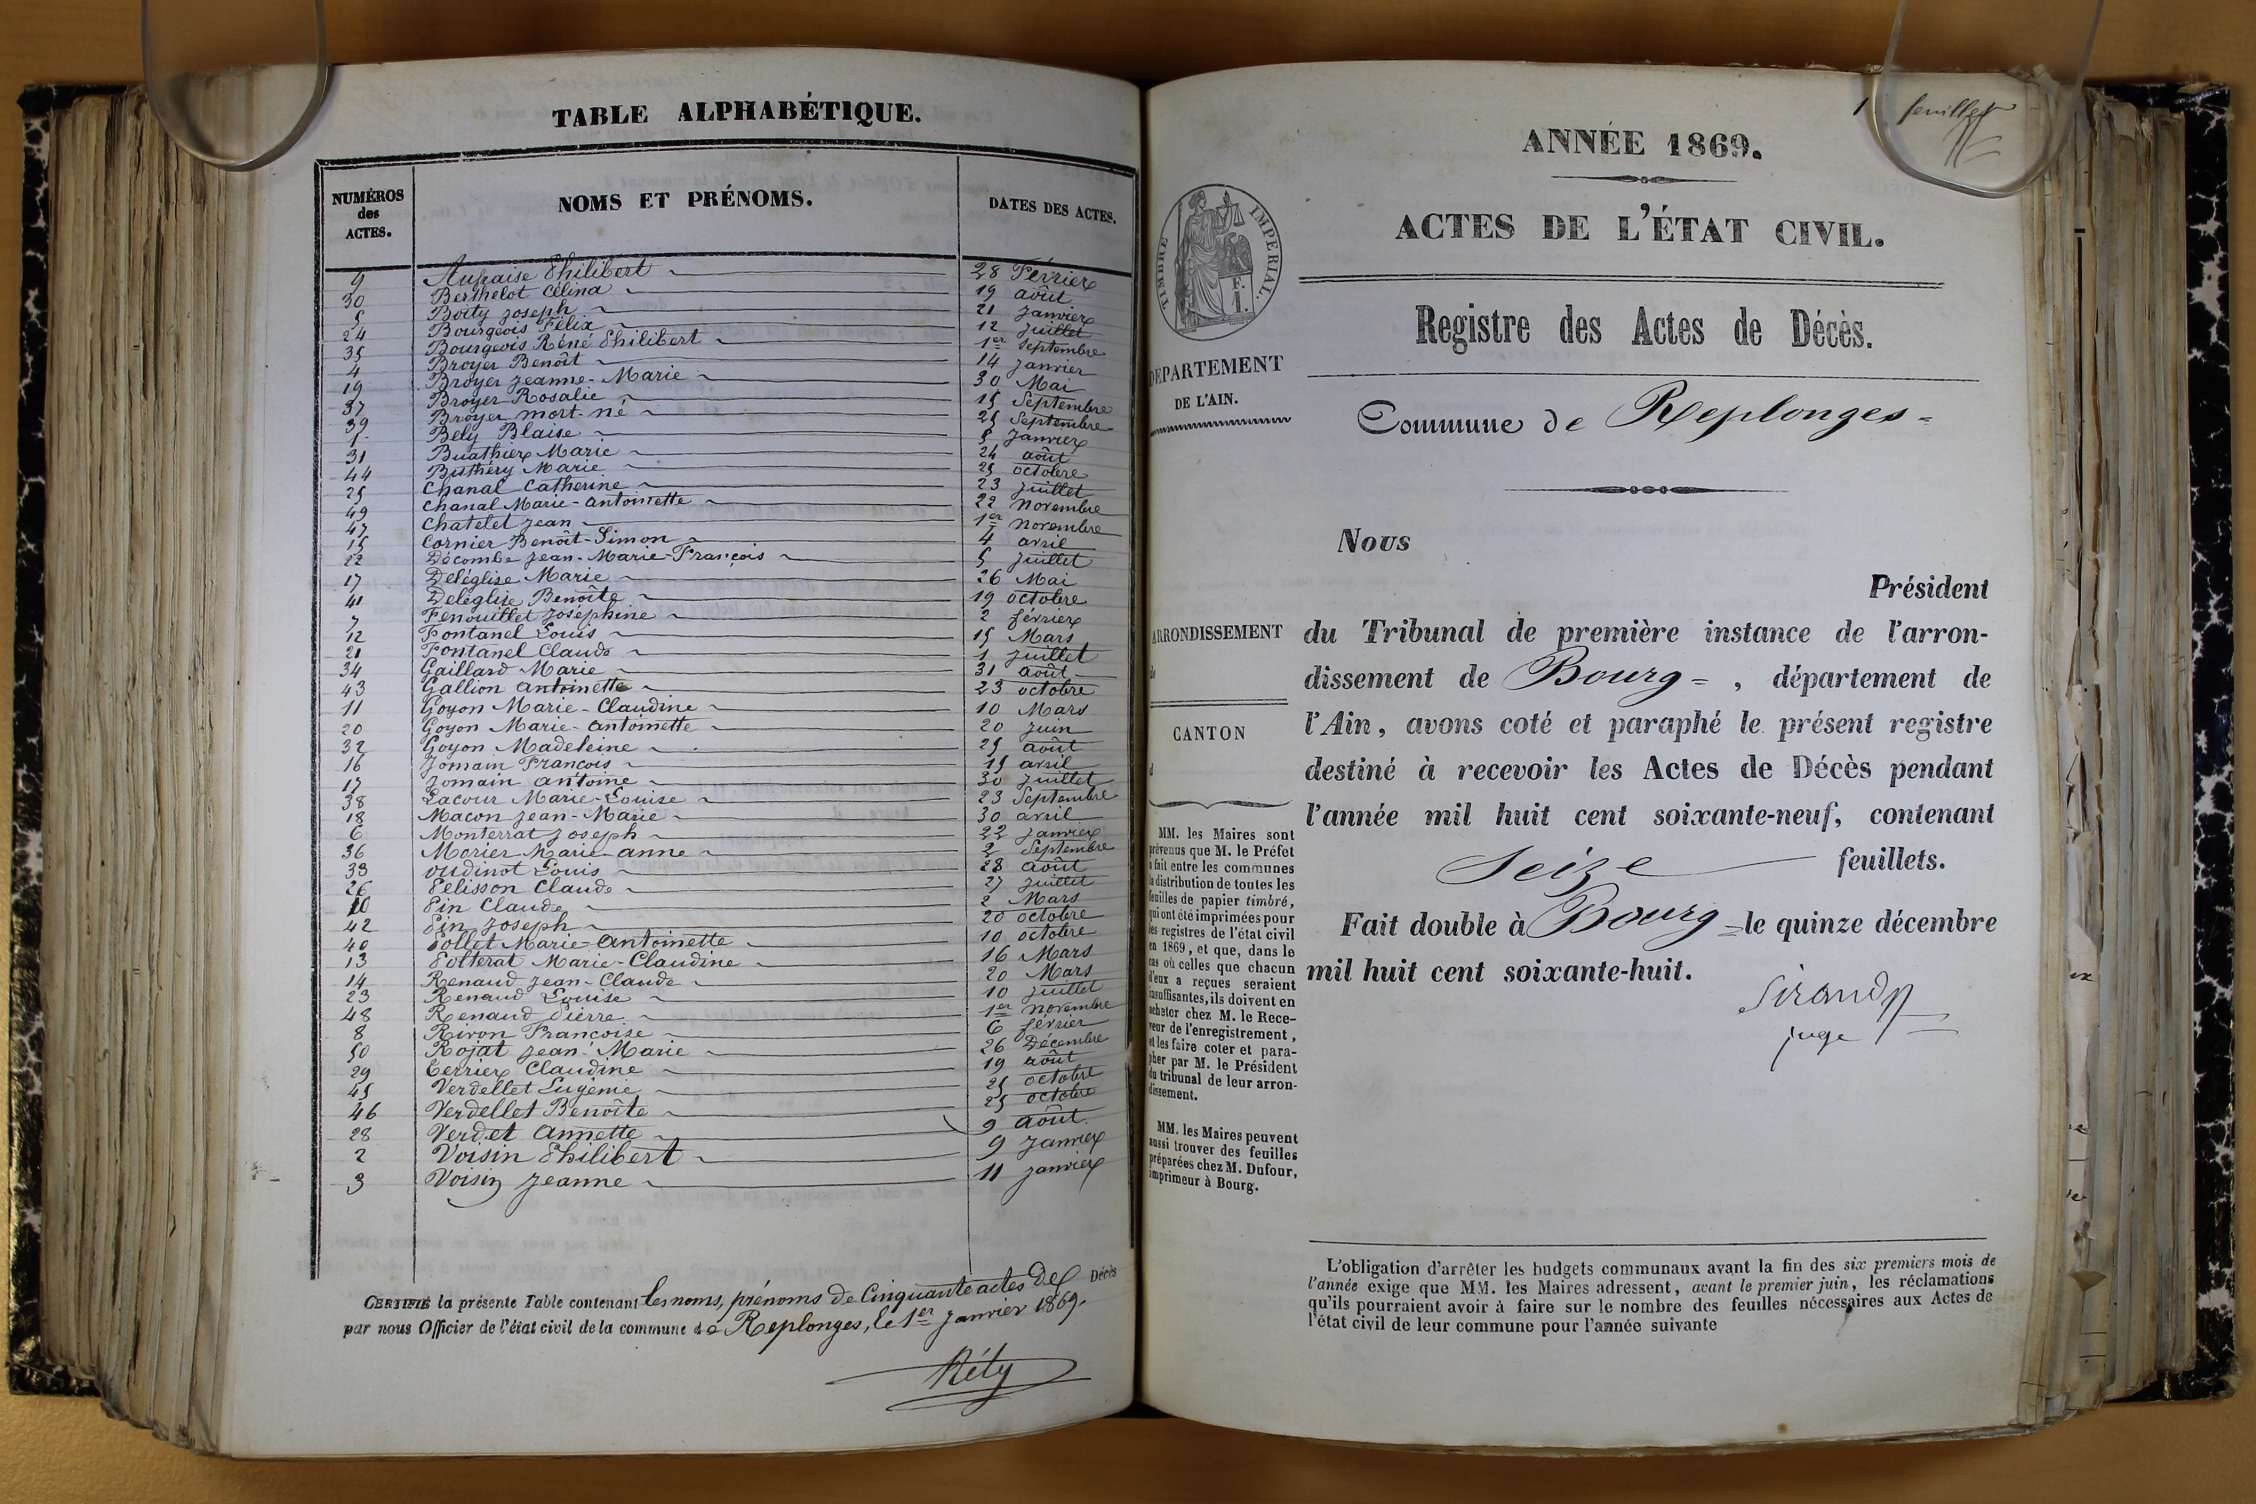 TABLE ALPHABÉTIQUE.
NUMÉROS des ACTES. NOMS ET PRÉNOMS. DATES DES ACTES.
9 Aufraise Philibert 28 Février
30 Berthelot Célina 19 août
5 Boity Joseph 21 Janvier
24 Bourgeois Félix 12 Juillet
35 Bourgeois Réné Philibert 1er Septembre
4 Broyer Benoît 14 Janvier
19 Broyer Jeanne-Marie 30 Mai
37 Broyer Rosalie 15 Septembre
39 Broyer mort-né 25 Septembre
1 Bely Blaise 5 Janvier
31 Buathier Marie 24 août
44 Buthéry Marie 25 octobre
25 Chanal Catherine 23 Juillet
49 Chanal Marie-Antoinette 22 Novembre
47 Chatelet Jean 1er Novembre
15 Cornier Benoît-Simon 4 avril
22 Décombe Jean-Marie-François 5 Juillet
17 Deléglise Marie 26 Mai
41 Deléglise Benoîte 19 octobre
7 Fenouillet Joséphine 2 février
12 Fontanel Louis 15 Mars
21 Fontanel Claude 1 Juillet
34 Gaillard Marie 31 août
43 Gallion Antoinette 23 octobre
11 Goyon Marie-Claudine 10 Mars
20 Goyon Marie-Antoinette 20 Juin
32 Goyon Madeleine 25 août
16 Jomain François 15 avril
17 Jomain Antoine 30 Juillet
38 Lacour Marie-Louise 23 Septembre
18 Macon Jean-Marie 30 avril
6 Monterrat Joseph 22 Janvier
36 Morier Marie-Anne 2 Septembre
33 Oudinot Louis 28 août
26 Pelisson Claude 27 Juillet
10 Pin Claude 2 Mars
42 Pin Joseph 20 octobre
40 Pollet Marie-Antoinette 10 octobre
13 Polterat Marie-Claudine 16 Mars
14 Renaud Jean-Claude 20 Mars
23 Renaud Louise 10 Juillet
48 Renaud Pierre 1er Novembre
8 Rivon Françoise 6 février
50 Rojat Jean-Marie 26 Décembre
29 Terrier Claudine 19 août
45 Verdellet Eugénie 25 octobre
46 Verdellet Benoîte 25 octobre
28 Verdet Annette 9 août
2 Voisin Philibert 9 Janvier
3 Voisin Jeanne 11 Janvier
CERTIFIÉ la présente Table contenant les noms, prénoms de Cinquante actes de Décès
par nous Officier de l'état civil de la commune de Replonges, le 1er Janvier 1869.
Réty
1 feuillet
ANNÉE 1869.
ACTES DE L'ÉTAT CIVIL.
TIMBRE IMPÉRIAL.
Registre des Actes de Décès.
DÉPARTEMENT
DE L'AIN.
Commune de Replonges
Nous
Président
du Tribunal de première instance de l'arron-
dissement de Bourg, département de
l'Ain, avons coté et paraphé le présent registre
destiné à recevoir les Actes de Décès pendant
l'année mil huit cent soixante-neuf, contenant
Seize feuillets.
Fait double à Bourg le quinze décembre
mil huit cent soixante-huit.
Sirand
juge
ARRONDISSEMENT
de
CANTON
d
MM. les Maires sont
prévenus que M. le Préfet
a fait entre les communes
la distribution de toutes les
feuilles de papier timbré,
qui ont été imprimées pour
les registres de l'état civil
en 1869, et que, dans le
cas où celles que chacun
d'eux a reçues seraient
insuffisantes, ils doivent en
acheter chez M. le Rece-
veur de l'enregistrement,
et les faire coter et para-
pher par M. le Président
du tribunal de leur arron-
dissement.
MM. les Maires peuvent
aussi trouver des feuilles
préparées chez M. Dufour,
imprimeur à Bourg.
L'obligation d'arrêter les budgets communaux avant la fin des six premiers mois de
l'année exige que MM. les Maires adressent, avant le premier juin, les réclamations
qu'ils pourraient avoir à faire sur le nombre des feuilles nécessaires aux Actes de
l'état civil de leur commune pour l'année suivante